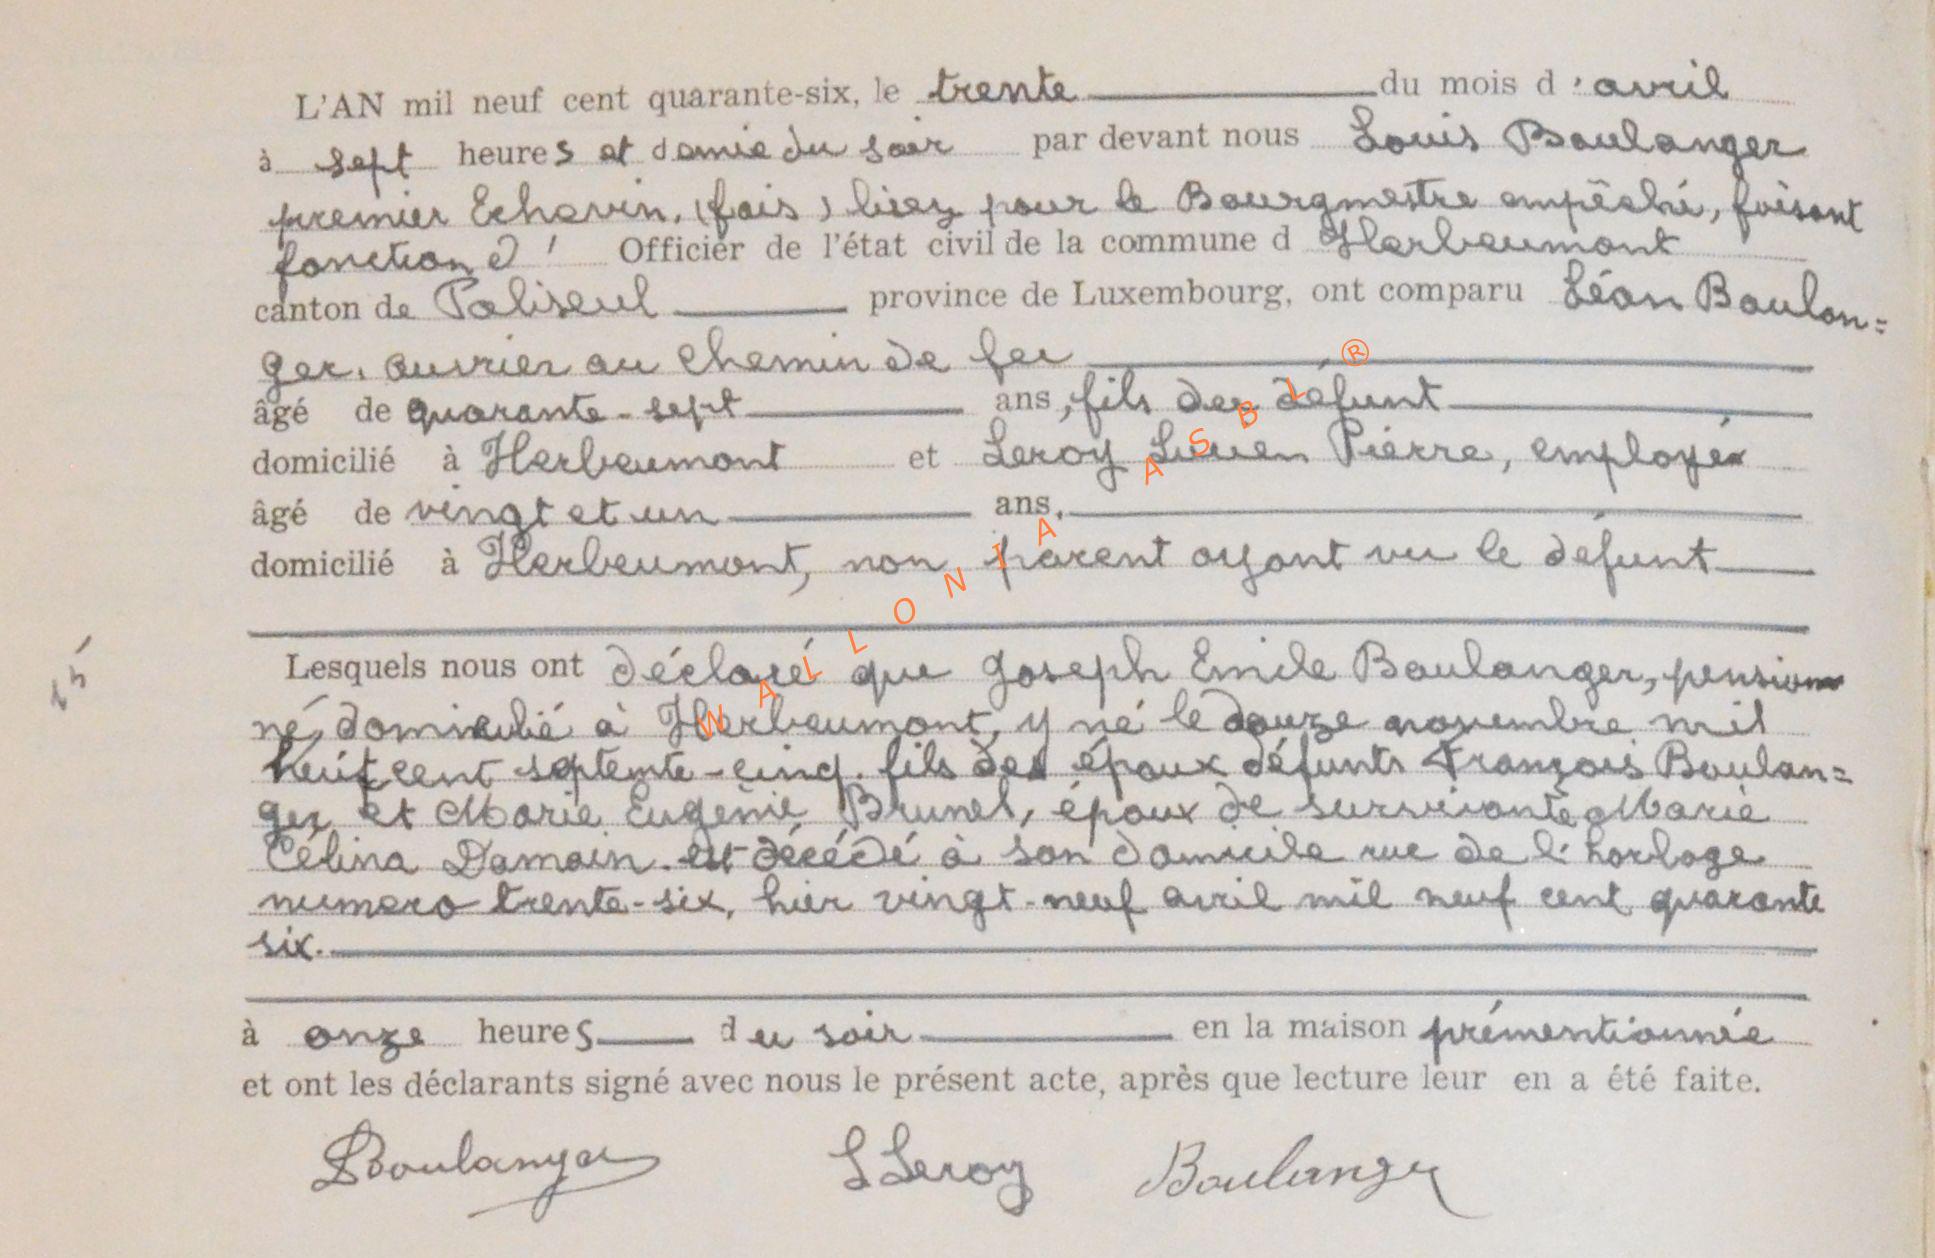 L'AN mil neuf cent quarante-six, le trente du mois d'avril
à sept heures et demie du soir par devant nous Louis Boulanger
premier Echevin, (fais) pour le Bourgmestre empêché, faisant
fonction d' Officier de l'état civil de la commune d Herbeumont
canton de Paliseul province de Luxembourg, ont comparu Léon Boulan=
ger, ouvrier au chemin de fer
âgé de quarante-sept ans, fils du défunt
domicilié à Herbeumont et Leroy Lucien Pierre, employé
âgé de vingt et un ans,
domicilié à Herbeumont, non parent ayant vu le défunt
Lesquels nous ont déclaré que Joseph Emile Boulanger, pension
né, domicilié à Herbeumont, y né le douze novembre mil
huit cent septente-cinq. fils des époux défunts François Boulan=
ger et Marie Eugènie Brunel, époux de survivante Marie
Célina Damain. est décédé à son domicile rue de l'horloge
numero trente-six, hier vingt-neuf avril mil neuf cent quarante
six.
à onze heures du soir en la maison prémentionnée
et ont les déclarants signé avec nous le présent acte, après que lecture leur en a été faite.
LBoulanger L Leroy Boulanger
15
WALLONIA ASBL ®